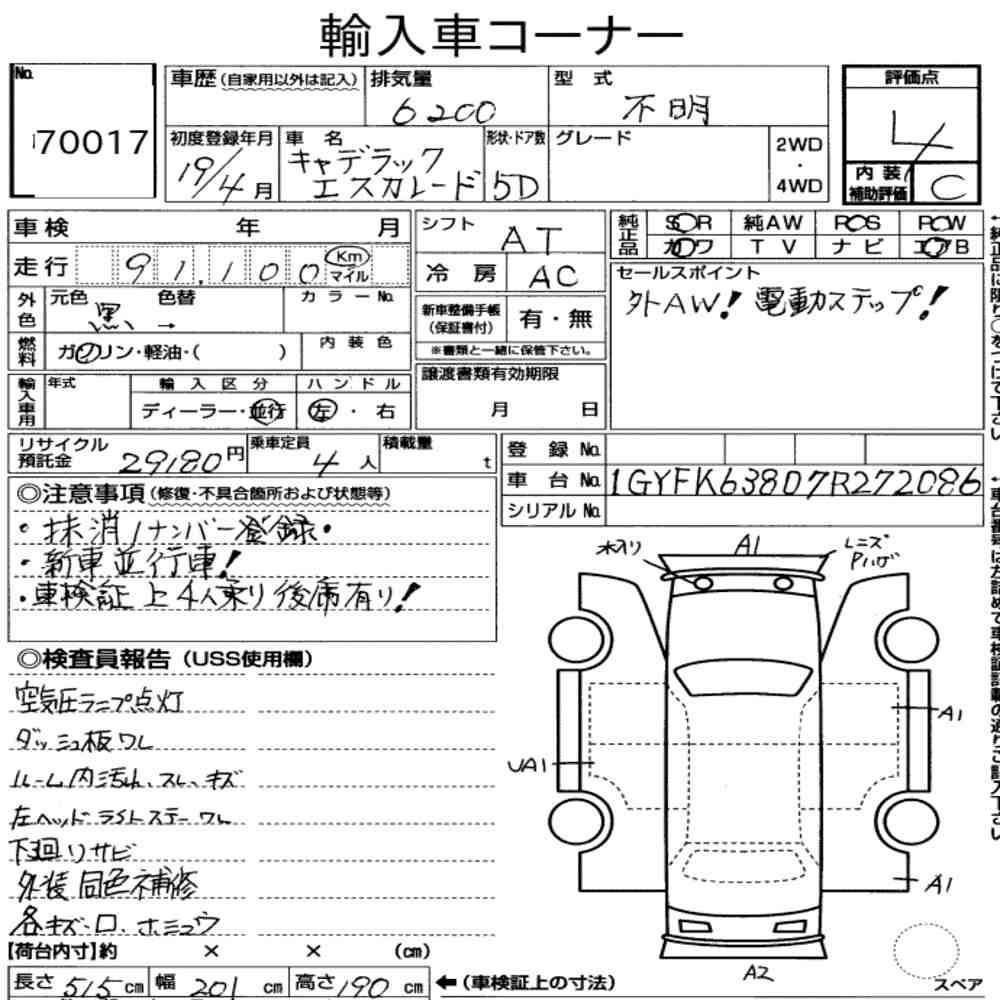 輸入車コーナー
No. 70017
車歴(自家用以外は記入) 排気量 6200 型式 不明
初度登録年月 19/4月 車名 キャデラック エスカレード 形状・ドア数 5D グレード 2WD・4WD
評価点 4
内装補助評価 C
車検 年 月
走行 91,100 Km マイル
シフト AT
冷房 AC
純正品 SR 純AW PS PW
カワ TV ナビ エアB
セールスポイント
外AW! 電動ステップ!
外色 元色 黒 色替 → カラーNo.
燃料 ガソリン・軽油・( ) 内装色
新車整備手帳(保証書付) 有・無
※書類と一緒に保管下さい。
譲渡書類有効期限
月 日
輸入車用 年式 輸入区分 ハンドル
ディーラー・並行 左・右
リサイクル預託金 29180円 乗車定員 4人 積載量 t
登録No.
車台No. 1GYFK63807R272086
シリアルNo.
◎注意事項(修復・不具合箇所および状態等)
・抹消/ナンバー登録・
・新車並行車!
・車検証上4人乗り後席有り!
◎検査員報告(USS使用欄)
空気圧ランプ点灯
ダッシュ板ワレ
ルーム内汚れ、スレ、キズ
左ヘッドライトステーワレ
下廻りサビ
外装同色補修
各キズ・
水入り A1 レンズPハゲ
A1
UA1
A1
A2
スペア
【荷台内寸】約 × × (cm)
長さ 515 cm 幅 201 cm 高さ 190 cm ←(車検証上の寸法)